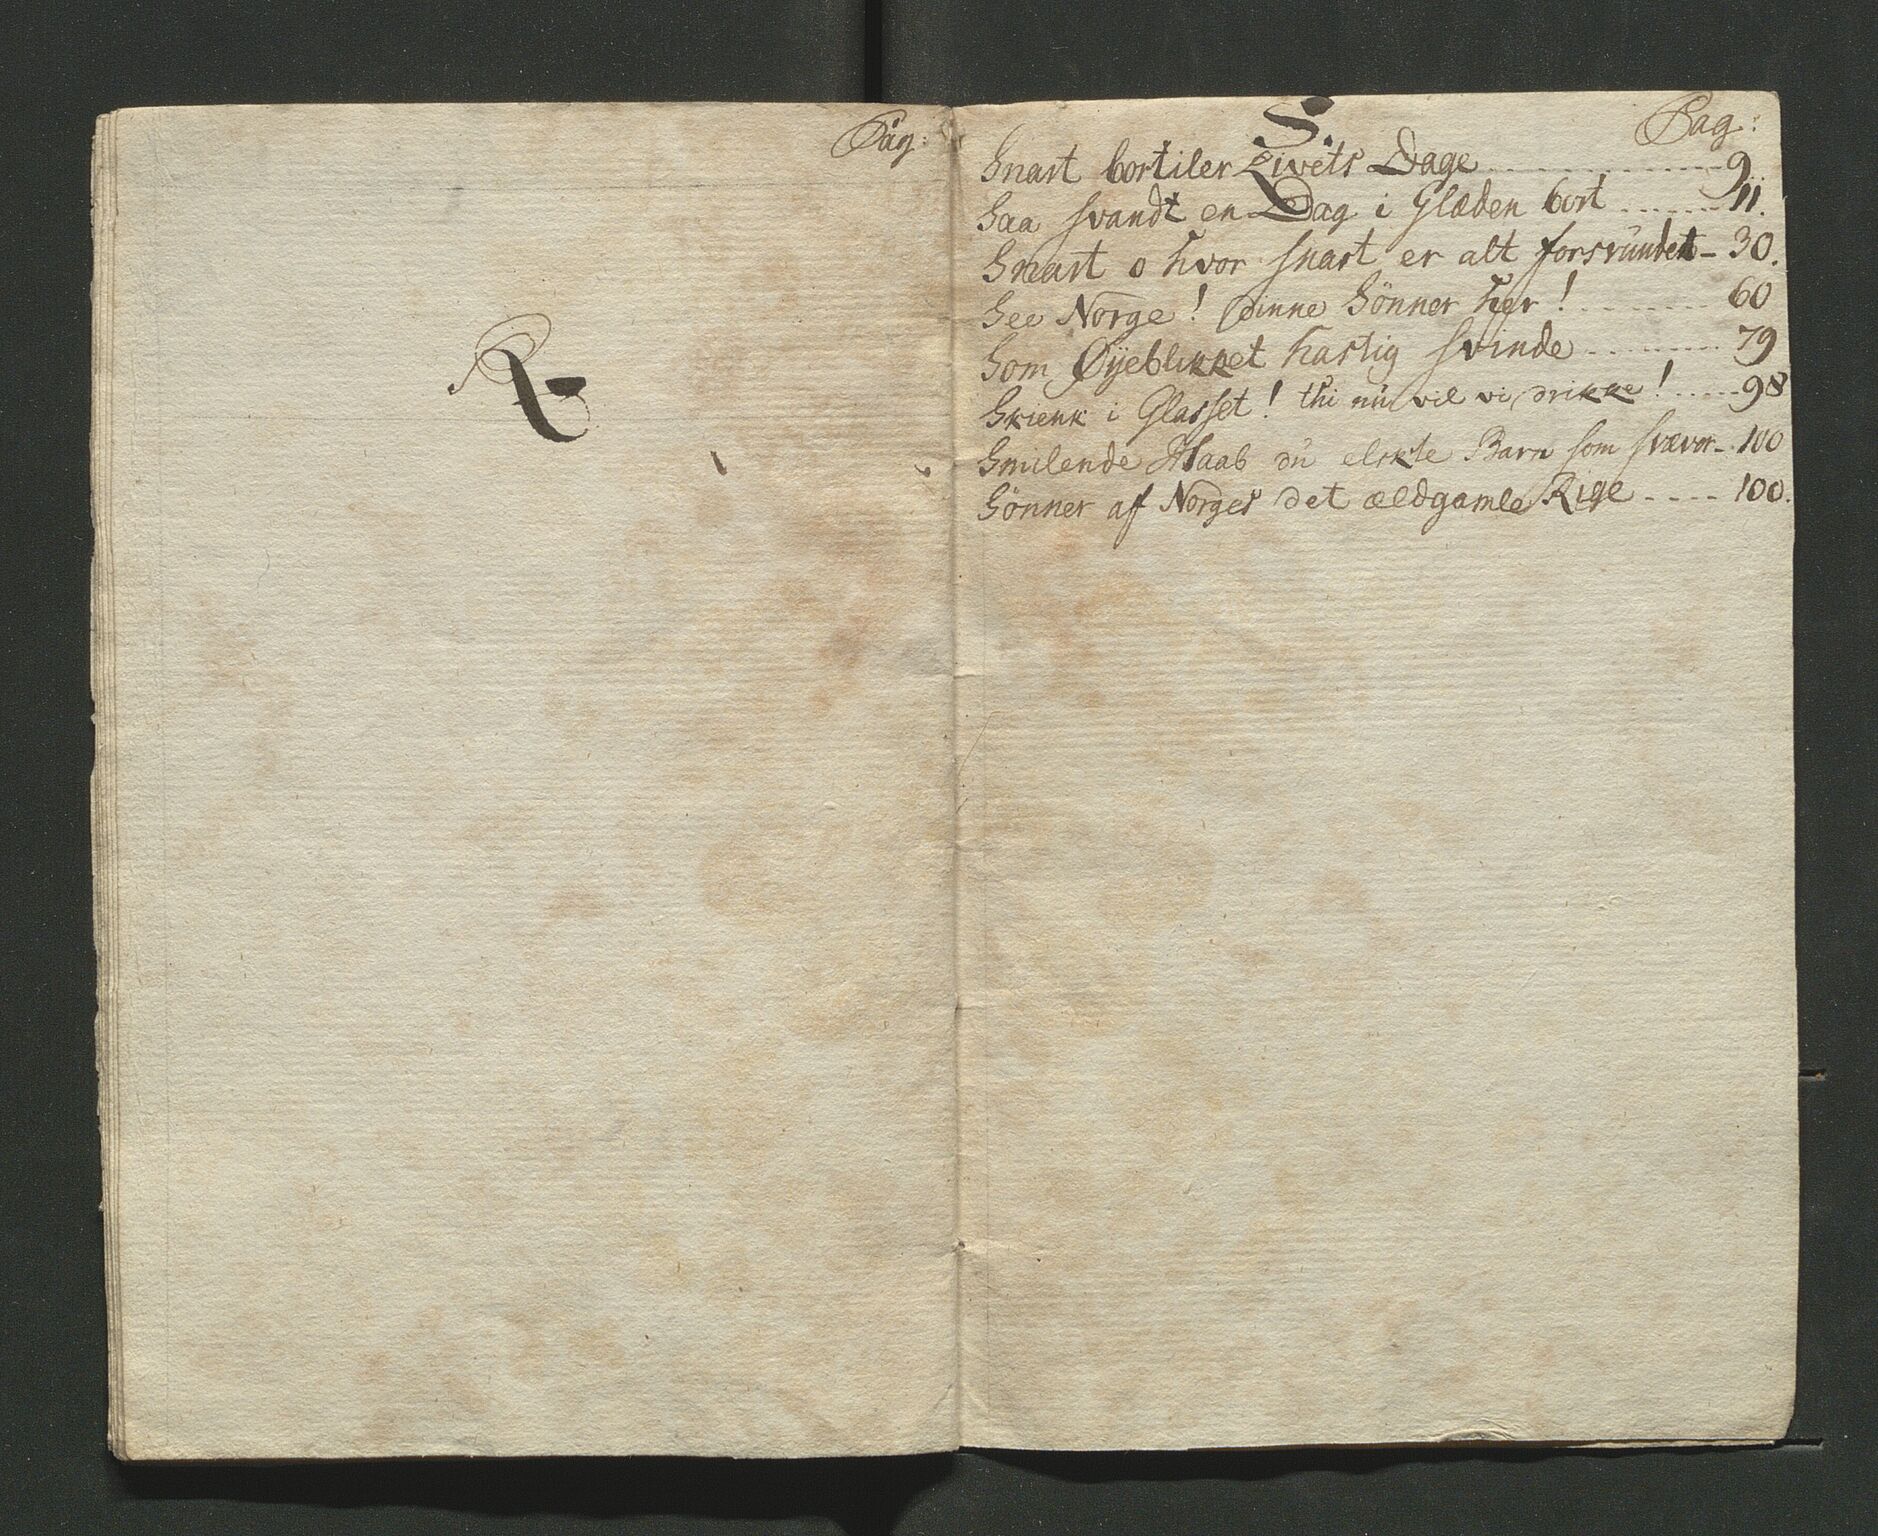 Pag:
R
S. Pag:
Snart bortiler Livets Dage ............ 9.
Saa svandt en Dag i Glæden bort ....... 11.
Snart o hvor snart er alt forsvundet - 30.
See Norge! dinne Sönner her! ......... 60
Som Øyeblikket hastig svinde ......... 79
Skienk i Glasset! thi nu vil vi drikke! ..... 98
Smilende Haab du elskte Barn som svæver - 100
Sönner af Norges det ældgamle Rige ---- 100.